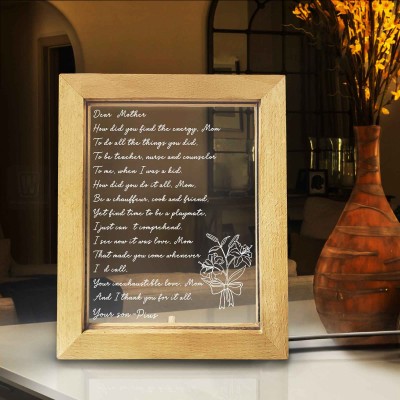 Dear Mother
How did you find the energy, Mom
To do all the things you did,
To be teacher, nurse and counselor
To me, when I was a kid.
How did you do it all, Mom,
Be a chauffeur, cook and friend,
Yet find time to be a playmate,
I just can t comprehend.
I see now it was love, Mom
That made you come whenever
I d call.
Your inexhaustible love, Mom
And I thank you for it all.
Your son -Pius